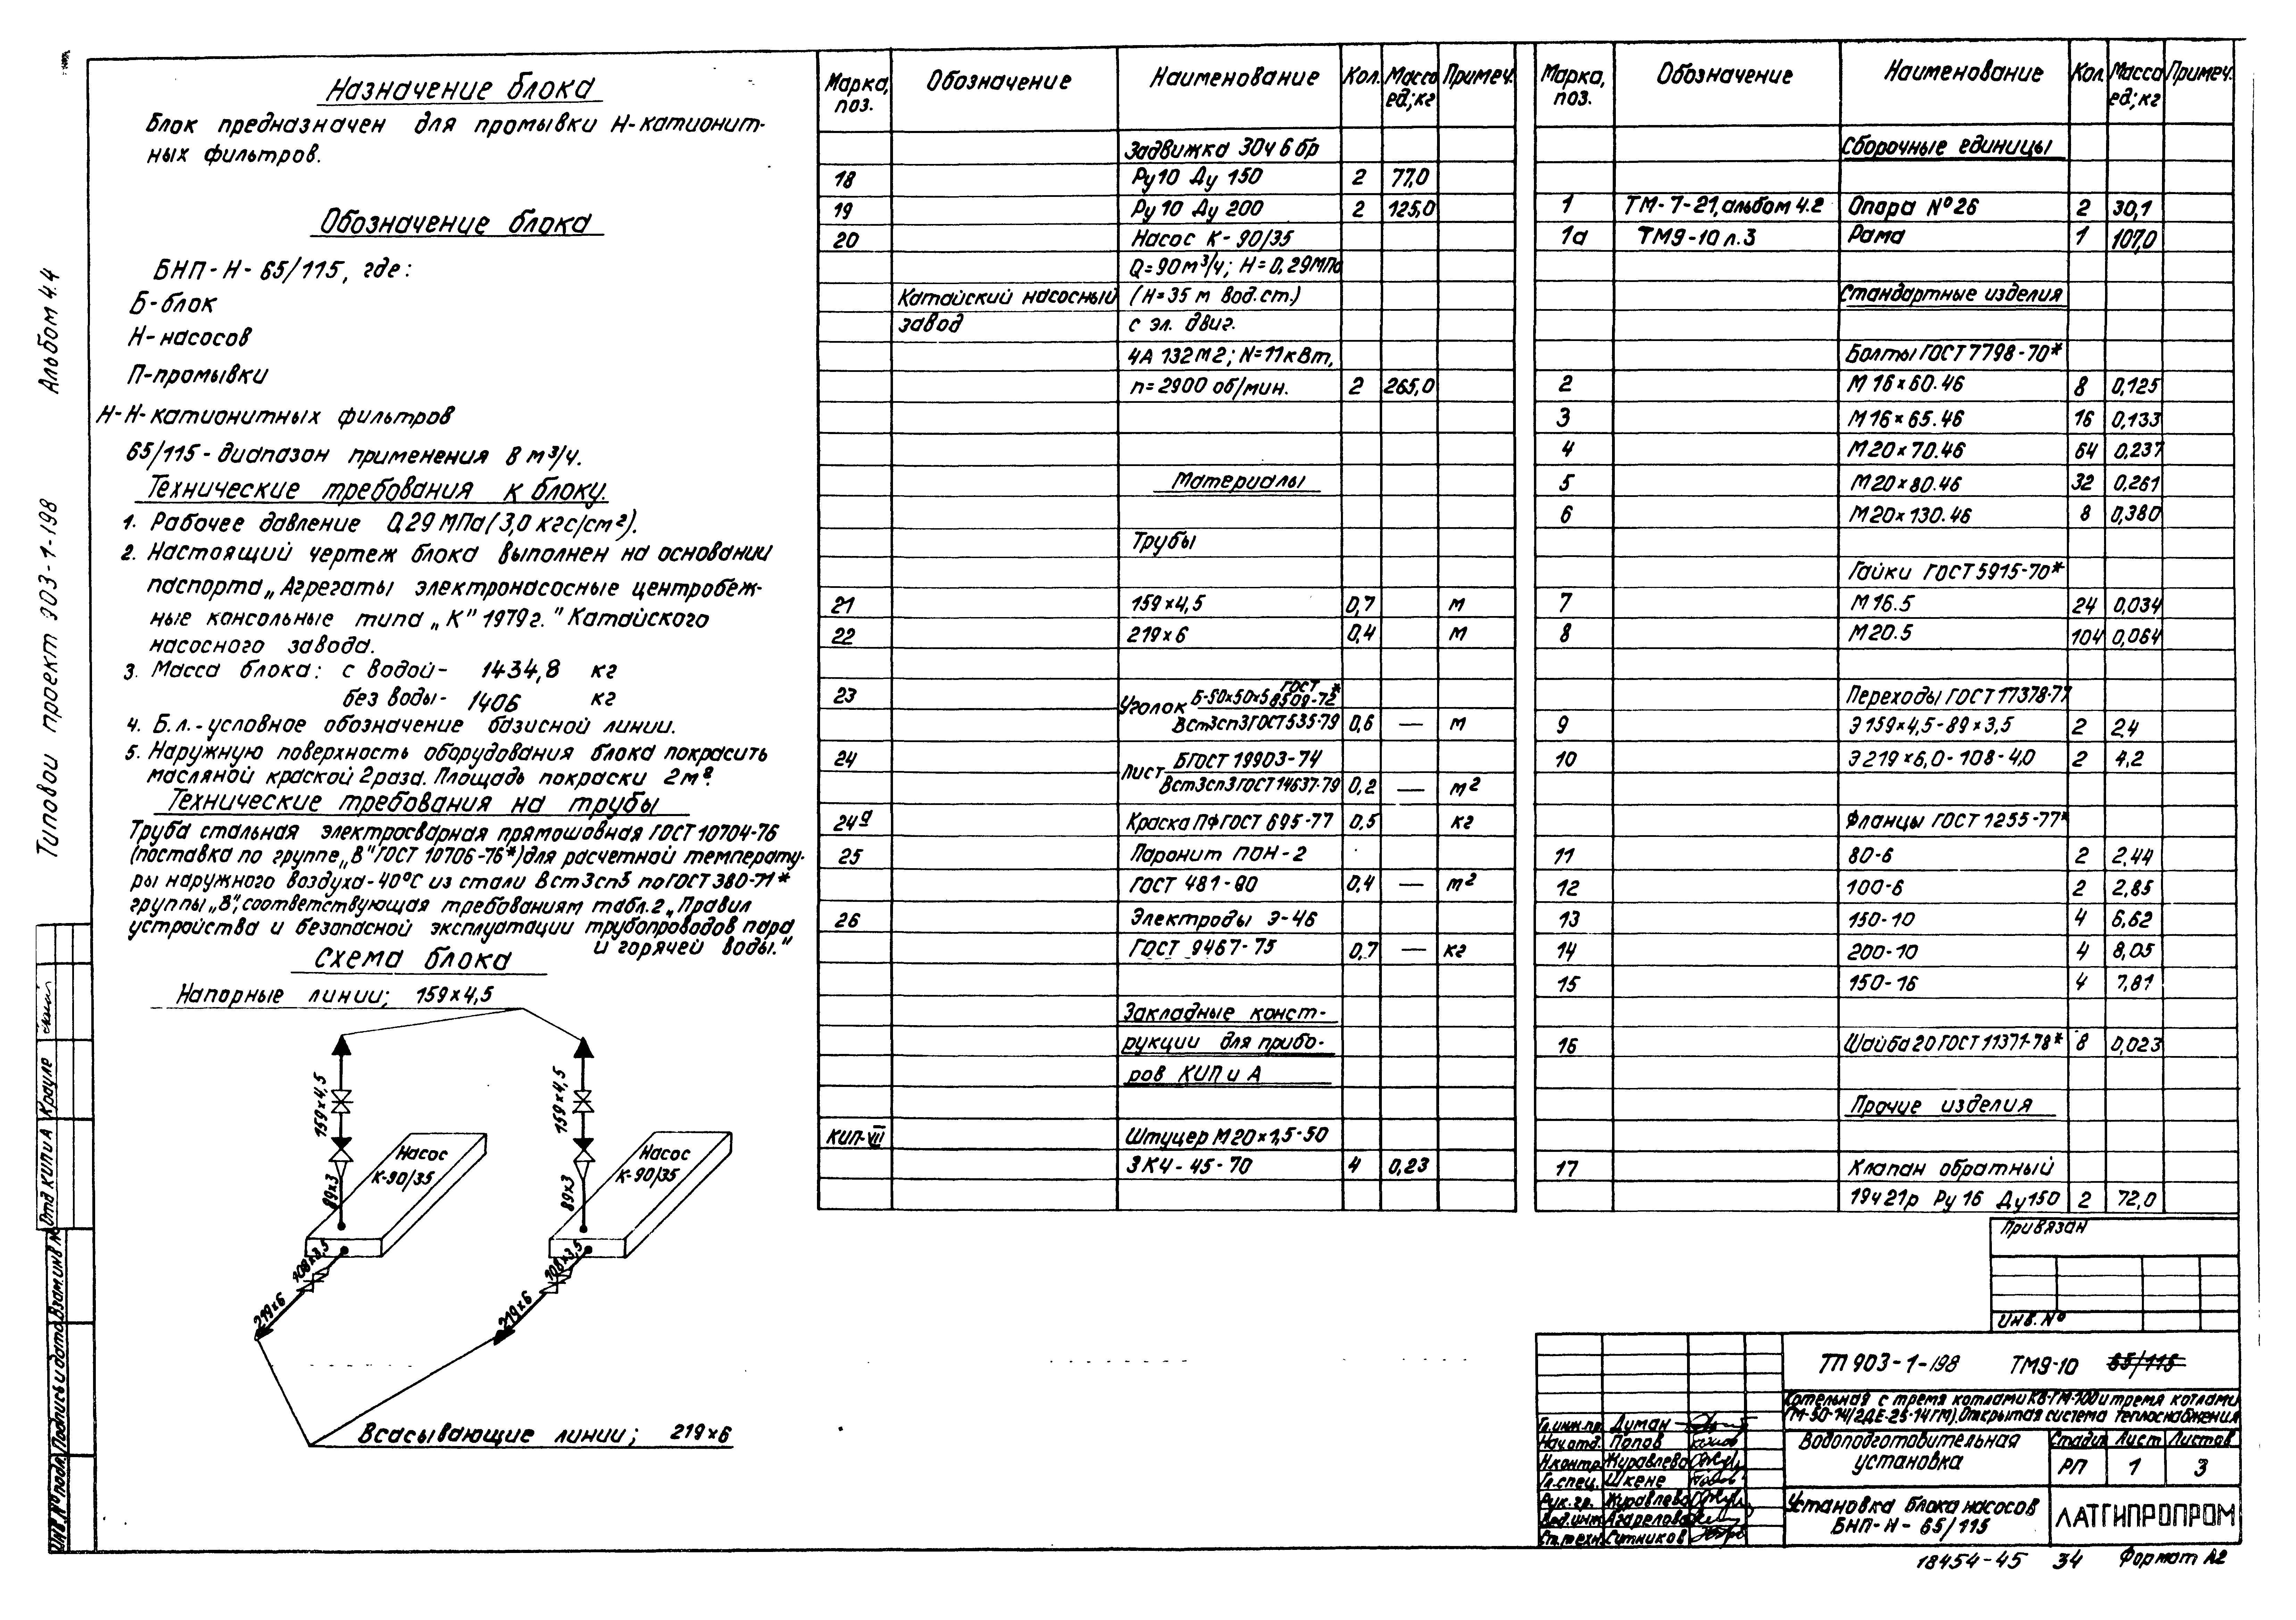 Альбом 4.4
Типовой проект 303-1-198
Назначение блока
Блок предназначен для промывки Н-катионит-
ных фильтров.
Обозначение блока
БНП-Н-65/115, где:
Б-блок
Н-насосов
П-промывки
Н-Н-катионитных фильтров
65/115-диапазон применения в м³/ч.
Технические требования к блоку.
1. Рабочее давление 0,29 МПа (3,0 кгс/см²).
2. Настоящий чертеж блока выполнен на основании
паспорта „Агрегаты электронасосные центробеж-
ные консольные типа „К" 1979г." Катайского
насосного завода.
3. Масса блока: с водой- 1434,8 кг
без воды- 1406 кг
4. Б.л.-условное обозначение базисной линии.
5. Наружную поверхность оборудования блока покрасить
масляной краской 2раза. Площадь покраски 2м².
Технические требования на трубы
Труба стальная электросварная прямошовная ГОСТ 10704-76
(поставка по группе „В" ГОСТ 10706-76*) для расчетной температу-
ры наружного воздуха-40°С из стали Вст3сп5 по ГОСТ 380-71*
группы „В", соответствующая требованиям табл.2 „Правил
устройства и безопасной эксплуатации трубопроводов пара
и горячей воды."
Схема блока
Напорные линии; 159×4,5
159×4,5
159×4,5
Насос
К-90/35
Насос
К-90/35
89×3
89×3
108×3,5
108×3,5
219×6
219×6
Всасывающие линии; 219×6
Марка, поз. Обозначение Наименование Кол. Масса ед;кг Примеч.
Задвижка 30ч6бр
18 Ру10 Ду 150 2 77,0
19 Ру10 Ду 200 2 125,0
20 Насос К-90/35
Q=90м³/ч; Н=0,29МПа
Катайский насосный (Н=35 м вод.ст.)
завод с эл. двиг.
4А 132М2; N=11кВт,
n=2900 об/мин. 2 265,0
Материалы
Трубы
21 159×4,5 0,7 м
22 219×6 0,4 м
23 Уголок Б-50×50×5 ГОСТ 8509-72*
Вст3сп3ГОСТ535-79 0,6 — м
24 Лист БГОСТ 19903-74
Вст3сп3ГОСТ14637-79 0,2 — м²
24а Краска ПФ ГОСТ 695-77 0,5 кг
25 Паронит ПОН-2
ГОСТ 481-80 0,4 — м²
26 Электроды Э-46
ГОСТ 9467-75 0,7 — кг
Закладные конст-
рукции для прибо-
ров КИП и А
КИП-VII Штуцер М20×1,5-50
ЗК4-45-70 4 0,23
Марка, поз. Обозначение Наименование Кол. Масса ед;кг Примеч.
Сборочные единицы
1 ТМ-7-21,альбом 4.2 Опора №26 2 30,1
1а ТМ9-10 л.3 Рама 1 107,0
Стандартные изделия
Болты ГОСТ 7798-70*
2 М16×60.46 8 0,125
3 М16×65.46 16 0,133
4 М20×70.46 64 0,237
5 М20×80.46 32 0,261
6 М20×130.46 8 0,380
Гайки ГОСТ 5915-70*
7 М16.5 24 0,034
8 М20.5 104 0,064
Переходы ГОСТ 17378-77
9 Э159×4,5-89×3,5 2 2,4
10 Э219×6,0-108-4,0 2 4,2
Фланцы ГОСТ 1255-77*
11 80-6 2 2,44
12 100-6 2 2,85
13 150-10 4 6,62
14 200-10 4 8,05
15 150-16 4 7,81
16 Шайба 20 ГОСТ 11371-78* 8 0,023
Прочие изделия
17 Клапан обратный
19ч21р Ру16 Ду150 2 72,0
Привязан
Инв. №
ТП 903-1-198 ТМ9-10 65/115
Котельная с тремя котлами КВ-ГМ-100 и тремя котлами
ГМ-50-14(2ДЕ-25-14ГМ). Открытая система теплоснабжения
Гл.инж.пр. Думан
Нач.отд. Попов
Н.контр. Журавлева
Гл.спец. Шкене
Рук.гр. Журавлева
Вед.инж. Агарелова
Ст.техн. Ситников
Водоподготовительная
установка
Стадия Лист Листов
РП 1 3
Установка блока насосов
БНП-Н-65/115
ЛАТГИПРОПРОМ
18454-45 34 Формат А2
Отд КИП и А Крауле
Взам инв №
Подпись и дата
Инв. № подл.